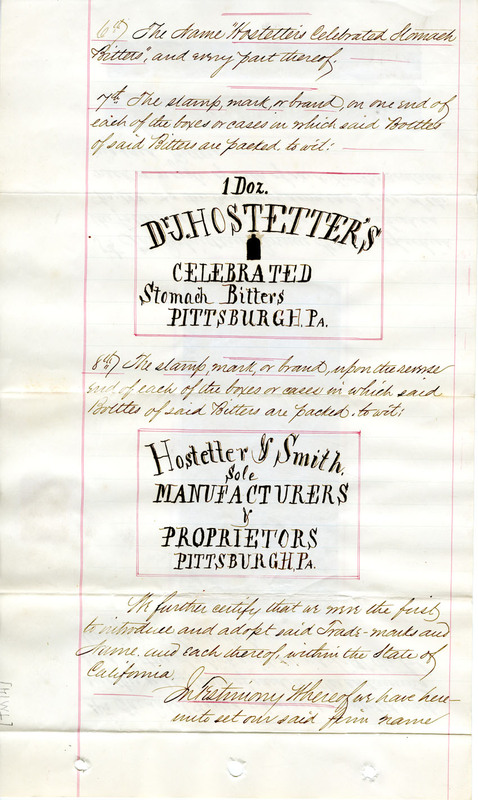 6th) The Name "Hostetter's Celebrated Stomach
Bitters", and every part thereof.
7th The stamp, mark, or brand, on one end of
each of the boxes or cases in which said Bottles
of said Bitters are packed to wit:
1 Doz.
Dr J. HOSTETTER'S
CELEBRATED
Stomach Bitters
PITTSBURGH, Pa.
8th) The stamp, mark, or brand, upon the reverse
end of each of the boxes or cases in which said
Bottles of said Bitters are packed. to wit:
Hostetter & Smith.
Sole
MANUFACTURERS
&
PROPRIETORS
PITTSBURGH, Pa.
We further certify that we were the first
to introduce and adopt said Trade-marks and
Name and each thereof, within the State of
California.
In Testimony Whereof we have here-
unto set our said firm name